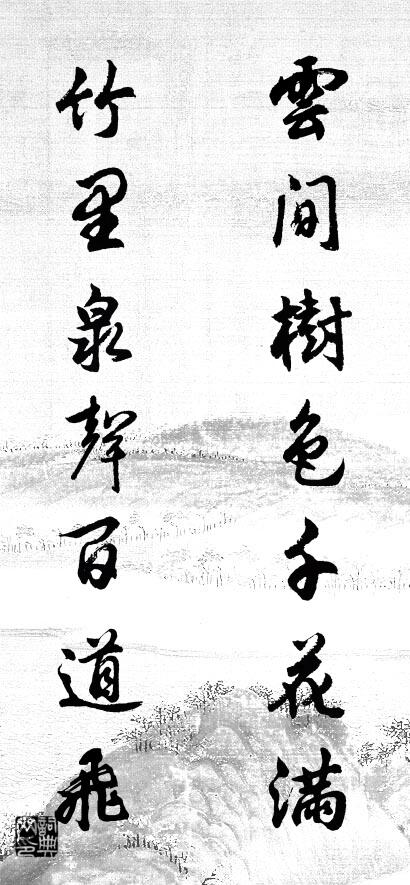 雲間樹色千花滿
竹里泉聲百道飛